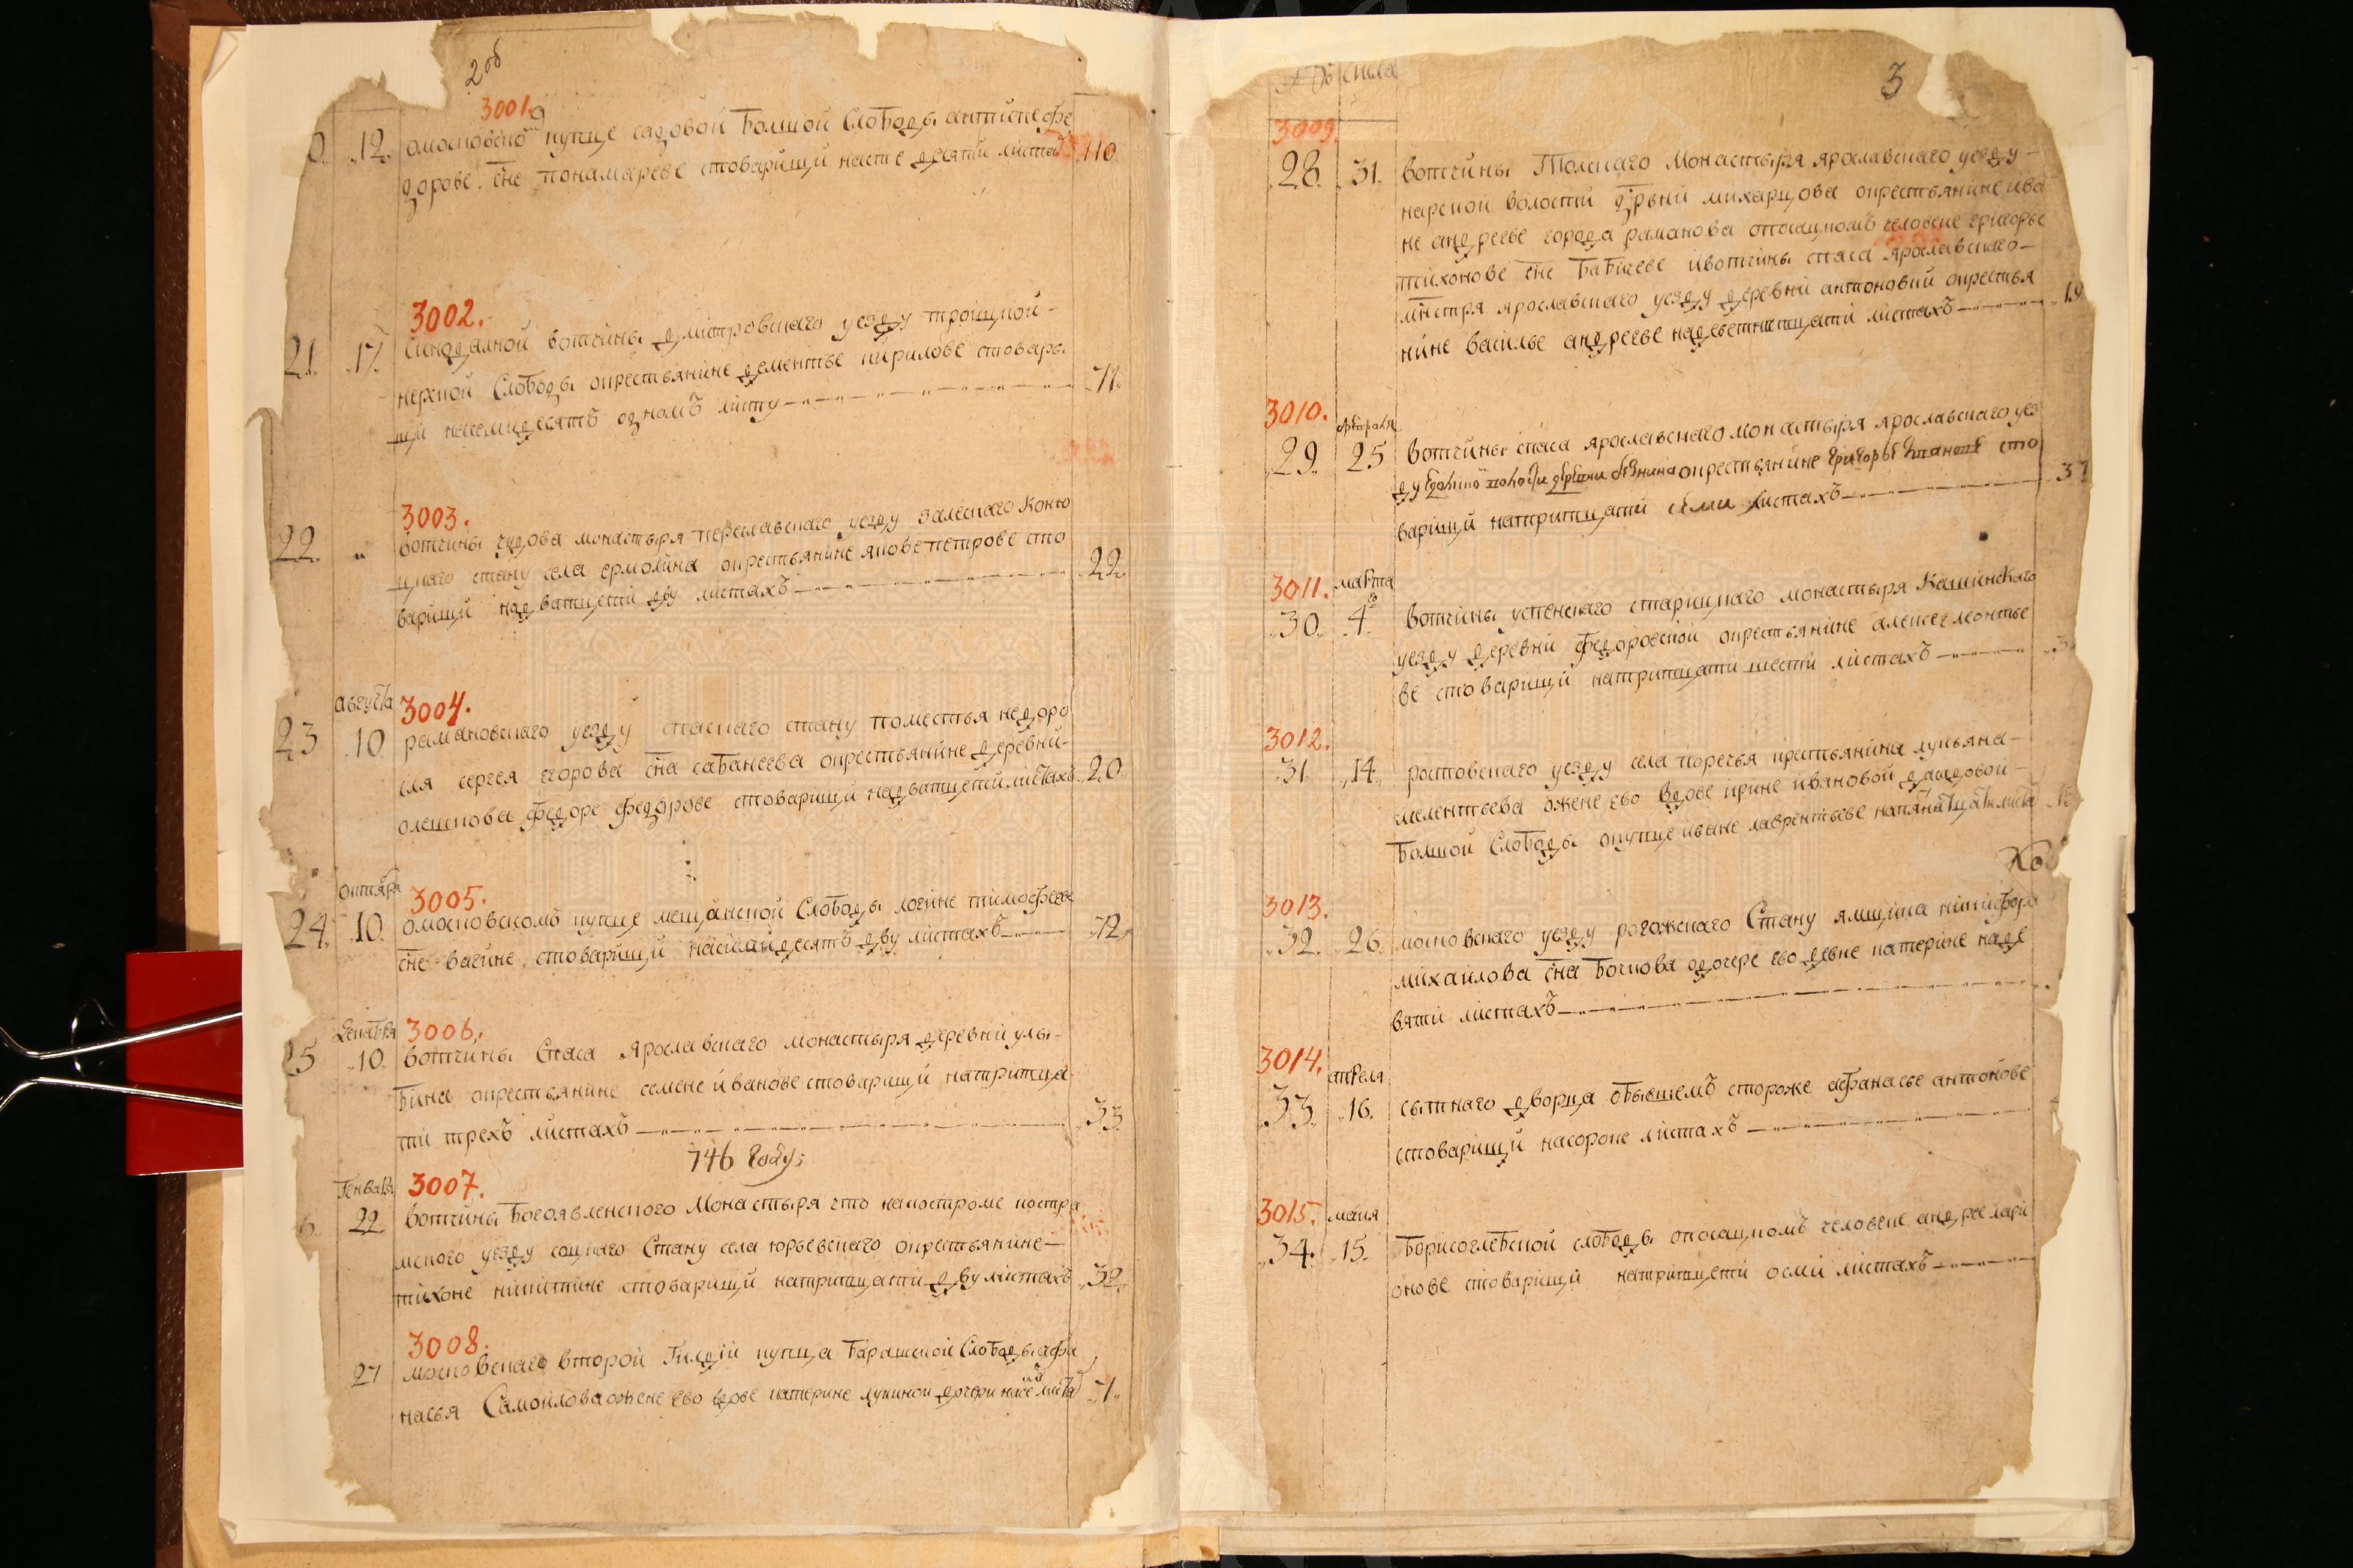 2об
3001.
0. 12. омосковско купце садовой Болшой Слободы антипе фе
дорове сне понамареве стоварищи насте десяти листах 110
3002.
21. 17. синодалной вотчины дмитровского уезду троицкой
нерхной Слободы окрестьянине дементье кирилове стовары
щи насемидесятъ одномъ листу 71.
3003.
22. вотчины чудова монастыря переславского уезду залеского Коню
цкаго стану села ермолина окрестьянине якове петрове сто
варищи надватцети дву листахъ 22.
августа 3004.
23 10 рамановского уезду спаского стану поместья недоро
сля сергея егорова сна сабанеева окрестьянине деревни
олешкова федоре федорове стоварищи надватцети листахъ 20.
октября 3005.
24. 10. омосковскомъ купце мещанской Слободы логине тимофееве
сне вагине стоварищи насемидесятъ дву листахъ 72.
декабря 3006.
25 10. вотчины Спаса Ярославского монастыря деревни улы
бина окрестьянине семене иванове стоварищи натритца
ти трехъ листахъ 33
746 году;
генваря 3007.
22 вотчины Богоявленского Монастыря что накостроме костра
мского уезду соцкаго Стану села юрьевскаго окрестьянине
тихоне никитине стоварищи натритцати дву листахъ 32.
3008.
27 московскаго второй Гилдии купца Барашской Слободы афа
насья Самоилова ожене ево вдове катерине лукиной дочери насеми листах 7.
3
числа
3009.
28. 31. вотчины Толскаго Монастыря ярославскаго уезду
нарской волости дрвни михарцова окрестьянине ива
не андрееве города раманова опосацкомъ человеке григорье
тихонове сне Бабичеве ивотчины спаса ярославского
мнстря ярославскаго уезду деревни антоновки окрестья
нине василье андрееве надеветнатцати листахъ 19
3010. февраля
29. 25 вотчины спаса ярославскаго монастыря ярославскаго уез
ду окрестьянине григорье сто
варищи натритцати семи листахъ 37
3011. марта
30. 4 вотчины успенскаго старицкаго монастыря Кашинскаго
уезду деревни федоровской окрестьянине алексее леонтье
ве стоварищи натритцати шести листахъ 3
3012.
31. 14. ростовскаго уезду села поречья крестьянина лукьяна
мелентьева ожене ево вдове ирине ивановой дашковой
Болшой Слободы окупце иване лаврентьеве напятнатцати листа
хъ
3013.
32. 26. московскаго уезду рогожскаго Стану ямщика никифора
михаилова сна Бочкова одочере ево девке катерине надe
вяти листахъ
3014. апреля
33 16. сытнаго дворца обывшемъ стороже афанасье антонове
стоварищи насороке листахъ
3015. маия
34. 15. Борисоглебской слободы опосацкомъ человеке андрее лари
онове стоварищи натритцети осми листахъ